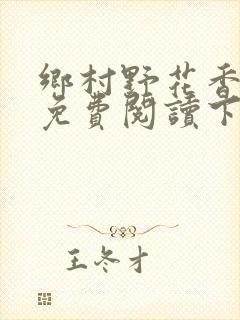 鄉村野花香
免費閱讀下
王冬才